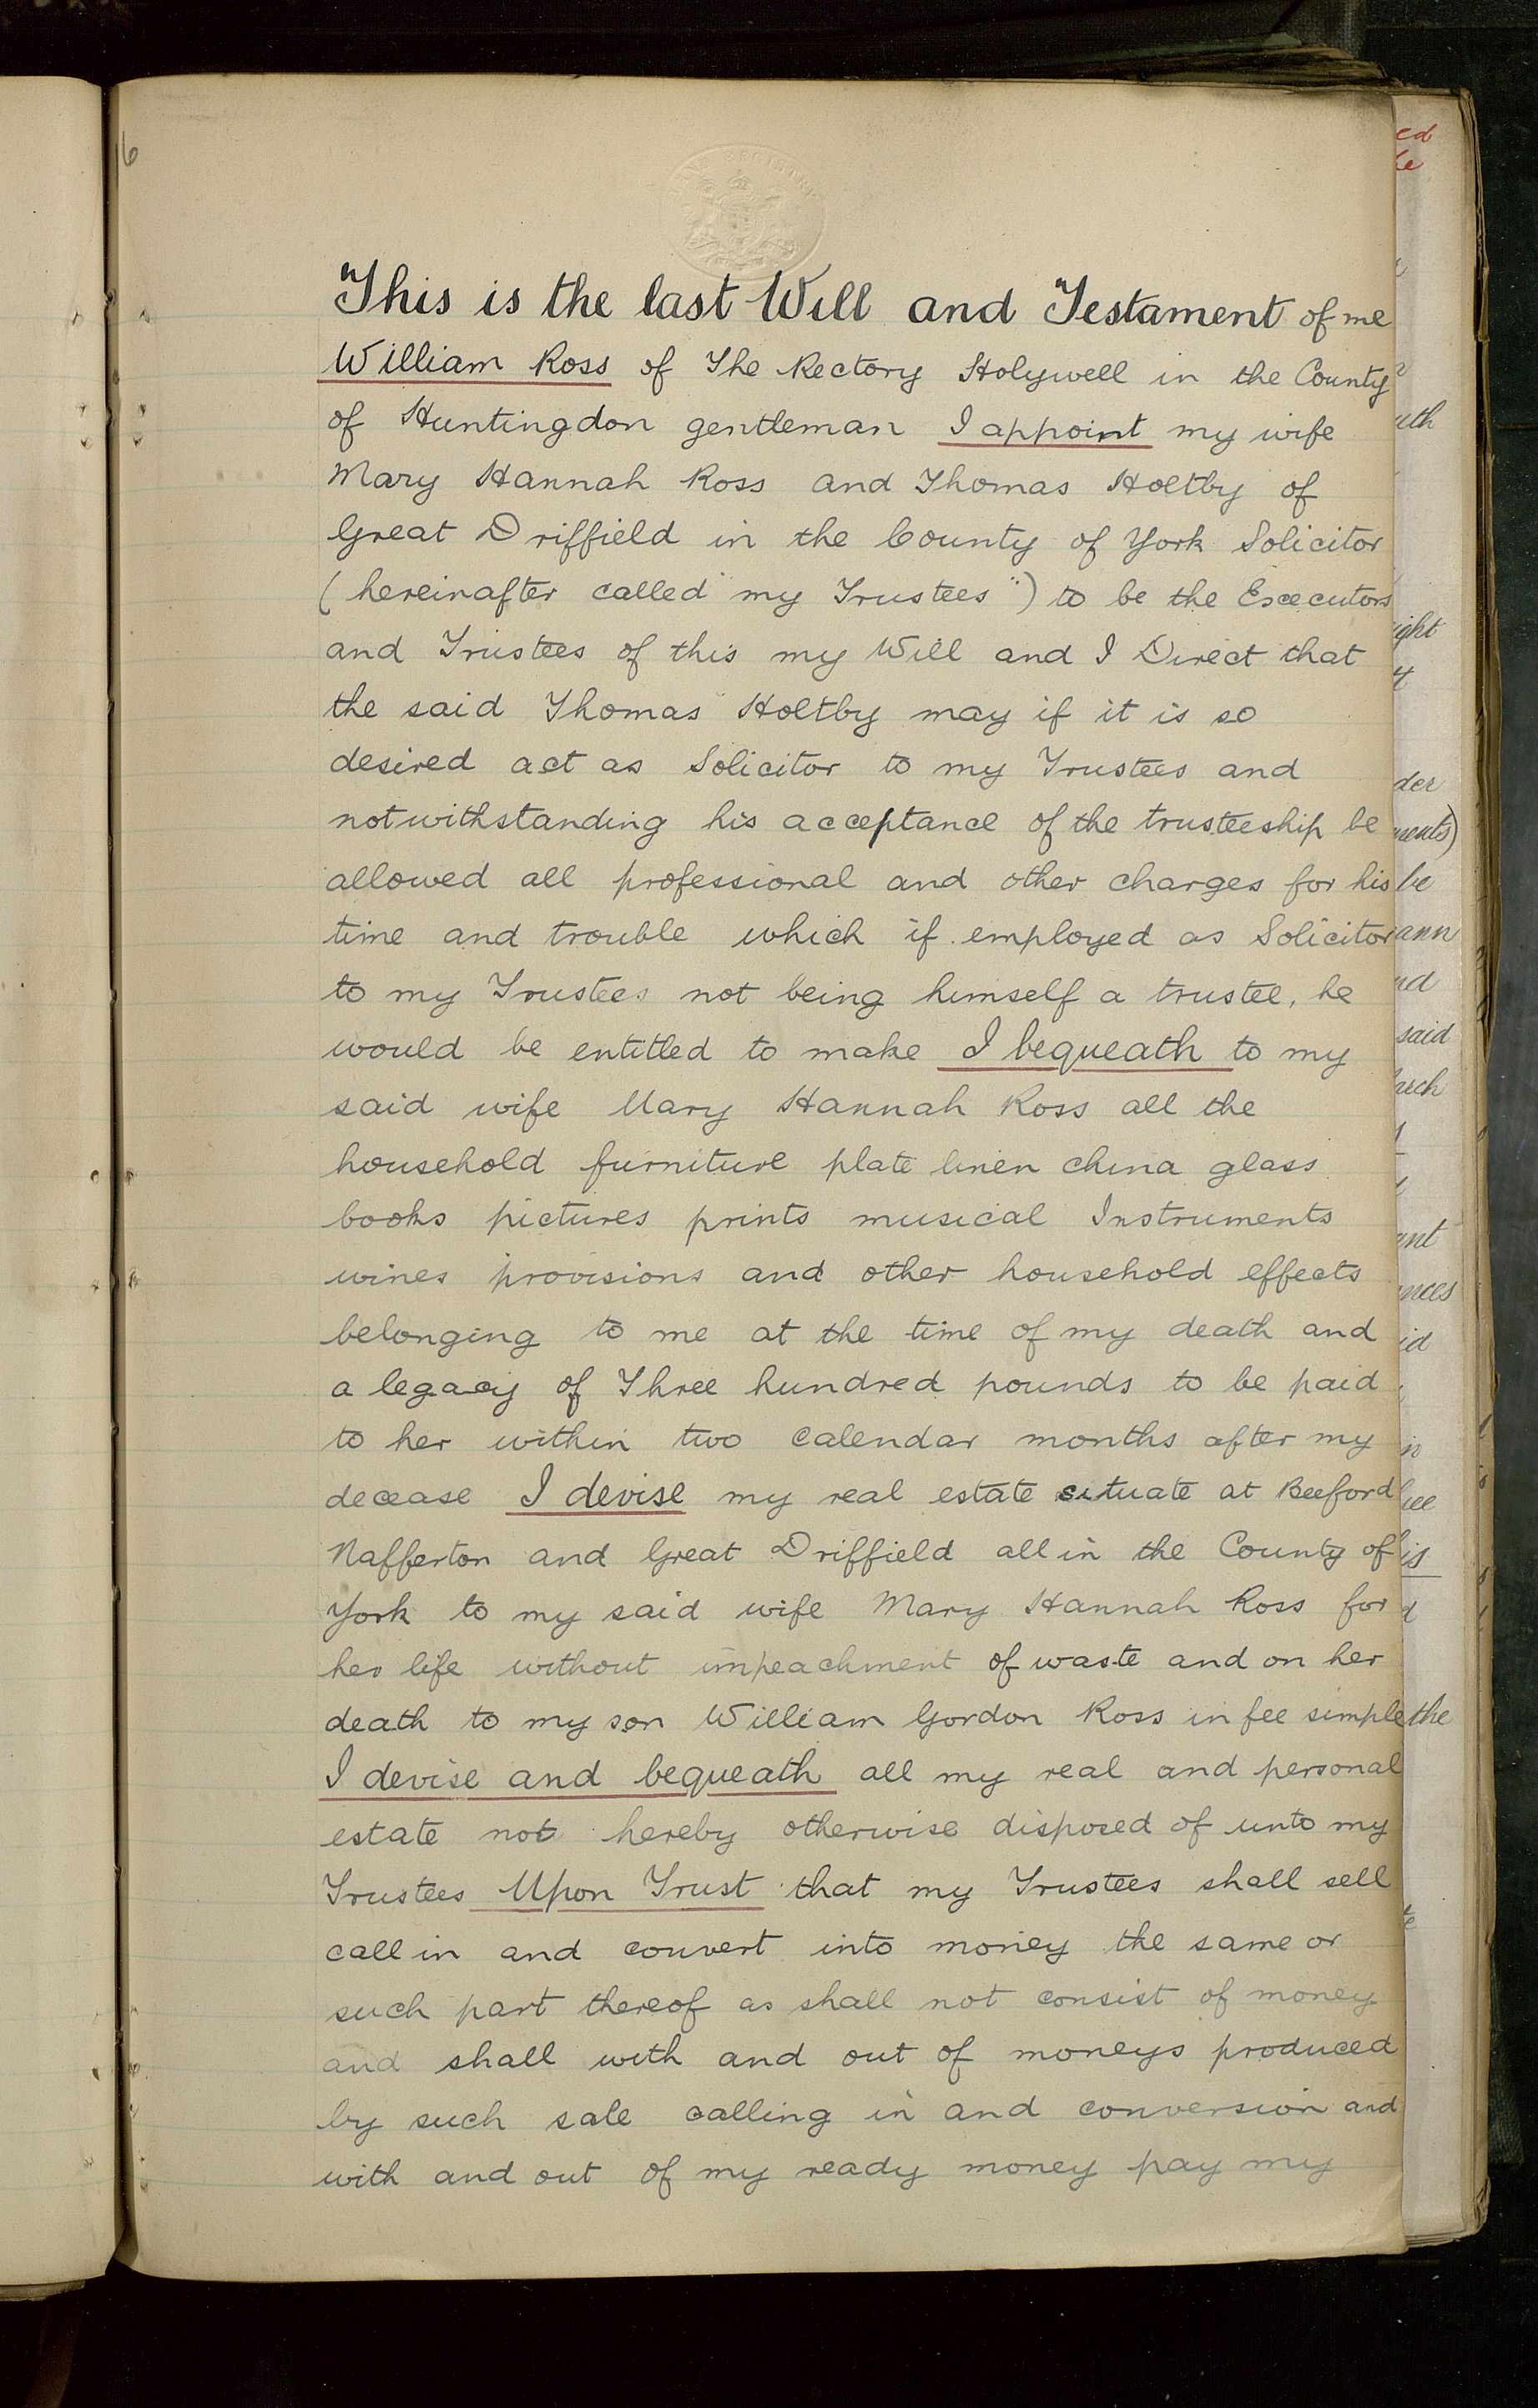 6
This is the last Will and Testament of me
William Ross of The Rectory Holywell in the County
of Huntingdon gentleman I appoint my wife
Mary Hannah Ross and Thomas Holtby of
Great Driffield in the County of York Solicitor
(hereinafter called "my Trustees") to be the Executors
and Trustees of this my Will and I Direct that
the said Thomas Holtby may if it is so
desired act as Solicitor to my Trustees and
notwithstanding his acceptance of the trusteeship be
allowed all professional and other charges for his
time and trouble which if employed as Solicitor
to my Trustees not being himself a trustee, he
would be entitled to make I bequeath to my
said wife Mary Hannah Ross all the
household furniture plate linen china glass
books pictures prints musical Instruments
wines provisions and other household effects
belonging to me at the time of my death and
a legacy of Three hundred pounds to be paid
to her within two calendar months after my
decease I devise my real estate situate at Beeford
Nafferton and Great Driffield all in the County of
York to my said wife Mary Hannah Ross for
her life without impeachment of waste and on her
death to my son William Gordon Ross in fee simple
I devise and bequeath all my real and personal
estate not hereby otherwise disposed of unto my
Trustees Upon Trust that my Trustees shall sell
call in and convert into money the same or
such part thereof as shall not consist of money
and shall with and out of moneys produced
by such sale calling in and conversion and
with and out of my ready money pay my